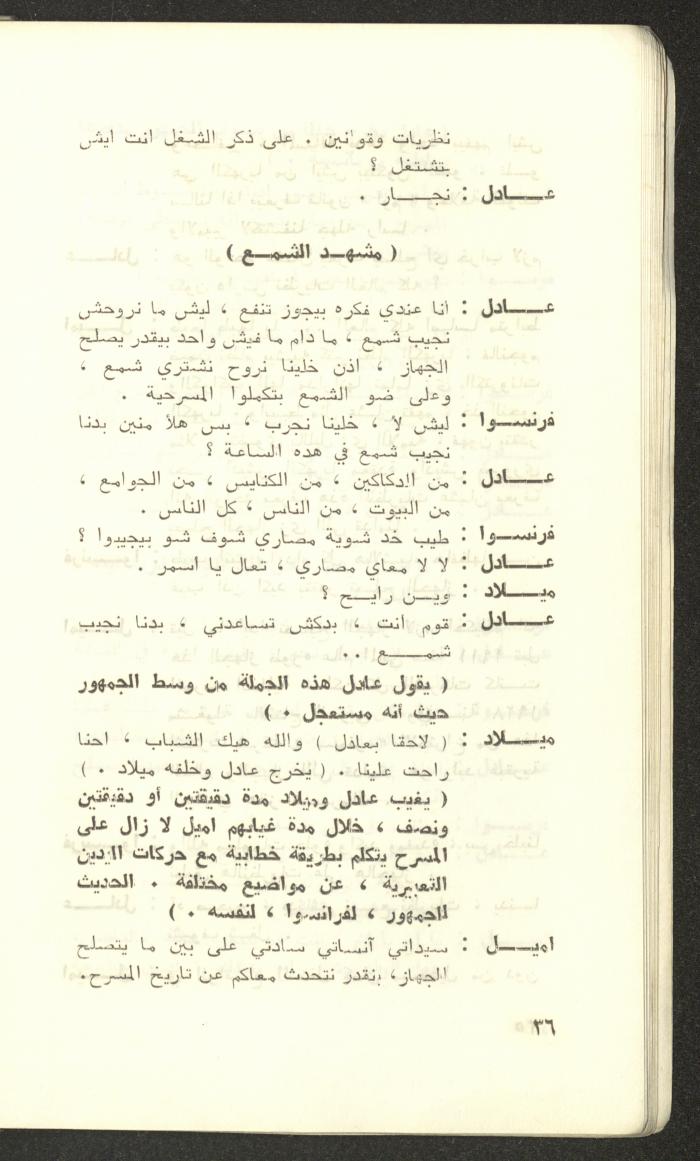 نظريات وقوانين . على ذكر الشغل انت ايش
بتشتغل ؟
عـــادل : نجـــار .
( مشهـد الشمـع )
عـــادل : أنا عندي فكره بيجوز تنفع ، ليش ما نروحش
نجيب شمع ، ما دام ما فيش واحد بيقدر يصلح
الجهاز ، اذن خلينا نروح نشتري شمع ،
وعلى ضو الشمع بتكملوا المسرحية .
فرنســـوا : ليش لأ ، خلينا نجرب ، بس هلأ منين بدنا
نجيب شمع في هده الساعة ؟
عـــادل : من الدكاكين ، من الكنايس ، من الجوامع ،
من البيوت ، من الناس ، كل الناس .
فرنســـوا : طيب خد شوية مصاري شوف شو بيجيبوا ؟
عـــادل : لا لا معاي مصاري ، تعال يا اسمر .
ميـــلاد : ويـن رايـح ؟
عـــادل : قوم انت ، بدكش تساعدني ، بدنا نجيب
شمـــع . .
( يقول عادل هذه الجملة من وسط الجمهور
حيث أنه مستعجل . )
ميـــلاد : ( لاحقا بعادل ) والله هيك الشباب ، احنا
راحت علينا . ( يخرج عادل وخلفه ميلاد . )
( يغيب عادل وميلاد مدة دقيقتين أو دقيقتين
ونصف ، خلال مدة غيابهم اميل لا زال على
المسرح يتكلم بطريقة خطابية مع حركات اليدين
التعبيرية ، عن مواضيع مختلفة . الحديث
للجمهور ، لفرانسوا ، لنفسه . )
اميـــل : سيداتي آنساتي سادتي على بين ما يتصلح
الجهاز، بنقدر نتحدث معاكم عن تاريخ المسرح.
٣٦